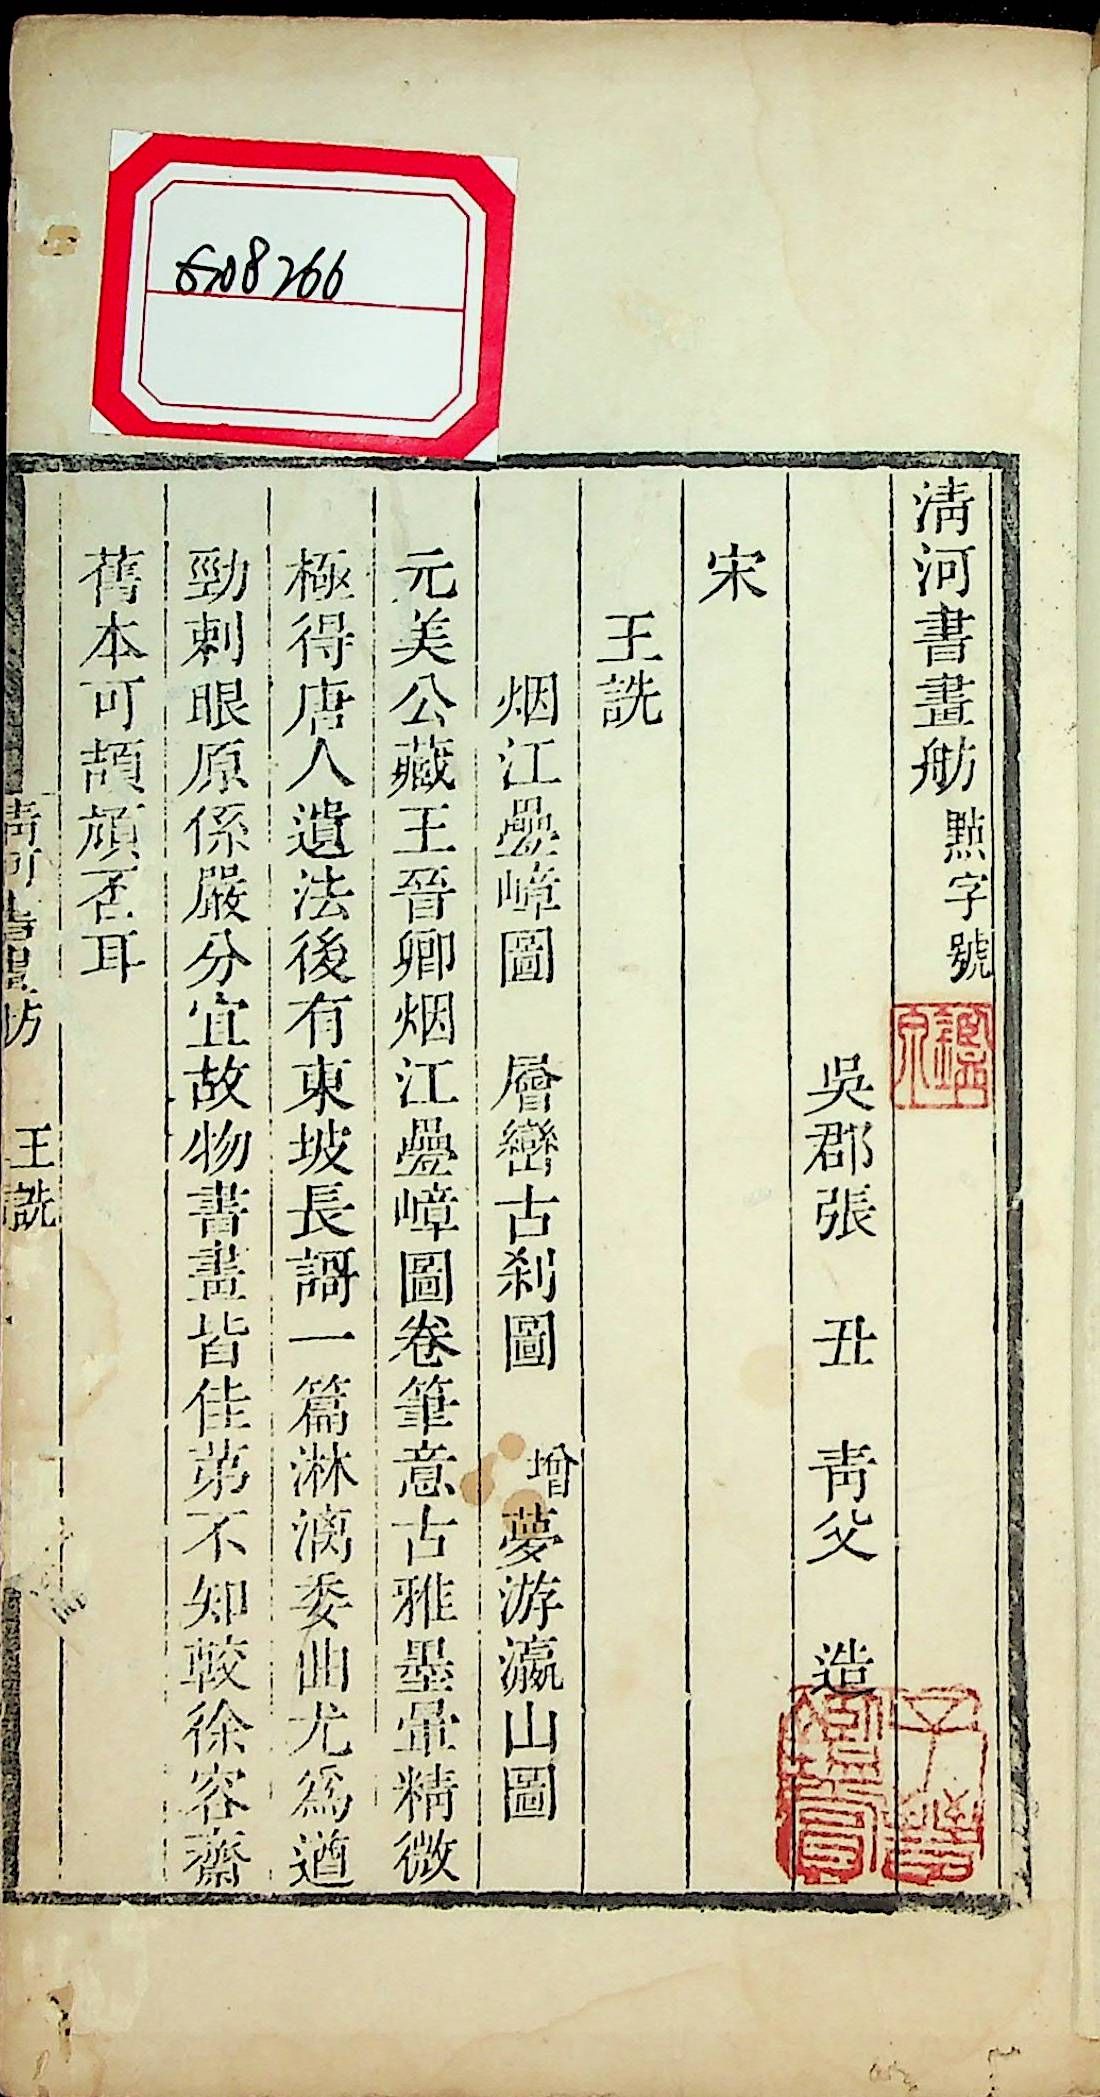 清河書畫舫點字號
吳郡張 丑 靑父 造
宋
王詵
烟江疊嶂圖 層巒古刹圖 增夢游瀛山圖
元美公藏王晉卿烟江疊嶂圖卷筆意古雅墨暈精微
極得唐人遺法後有東坡長謌一篇淋漓委曲尤爲遒
勁刺眼原係嚴分宜故物書畫皆佳苐不知較徐容齋
舊本可頡頏否耳
王詵